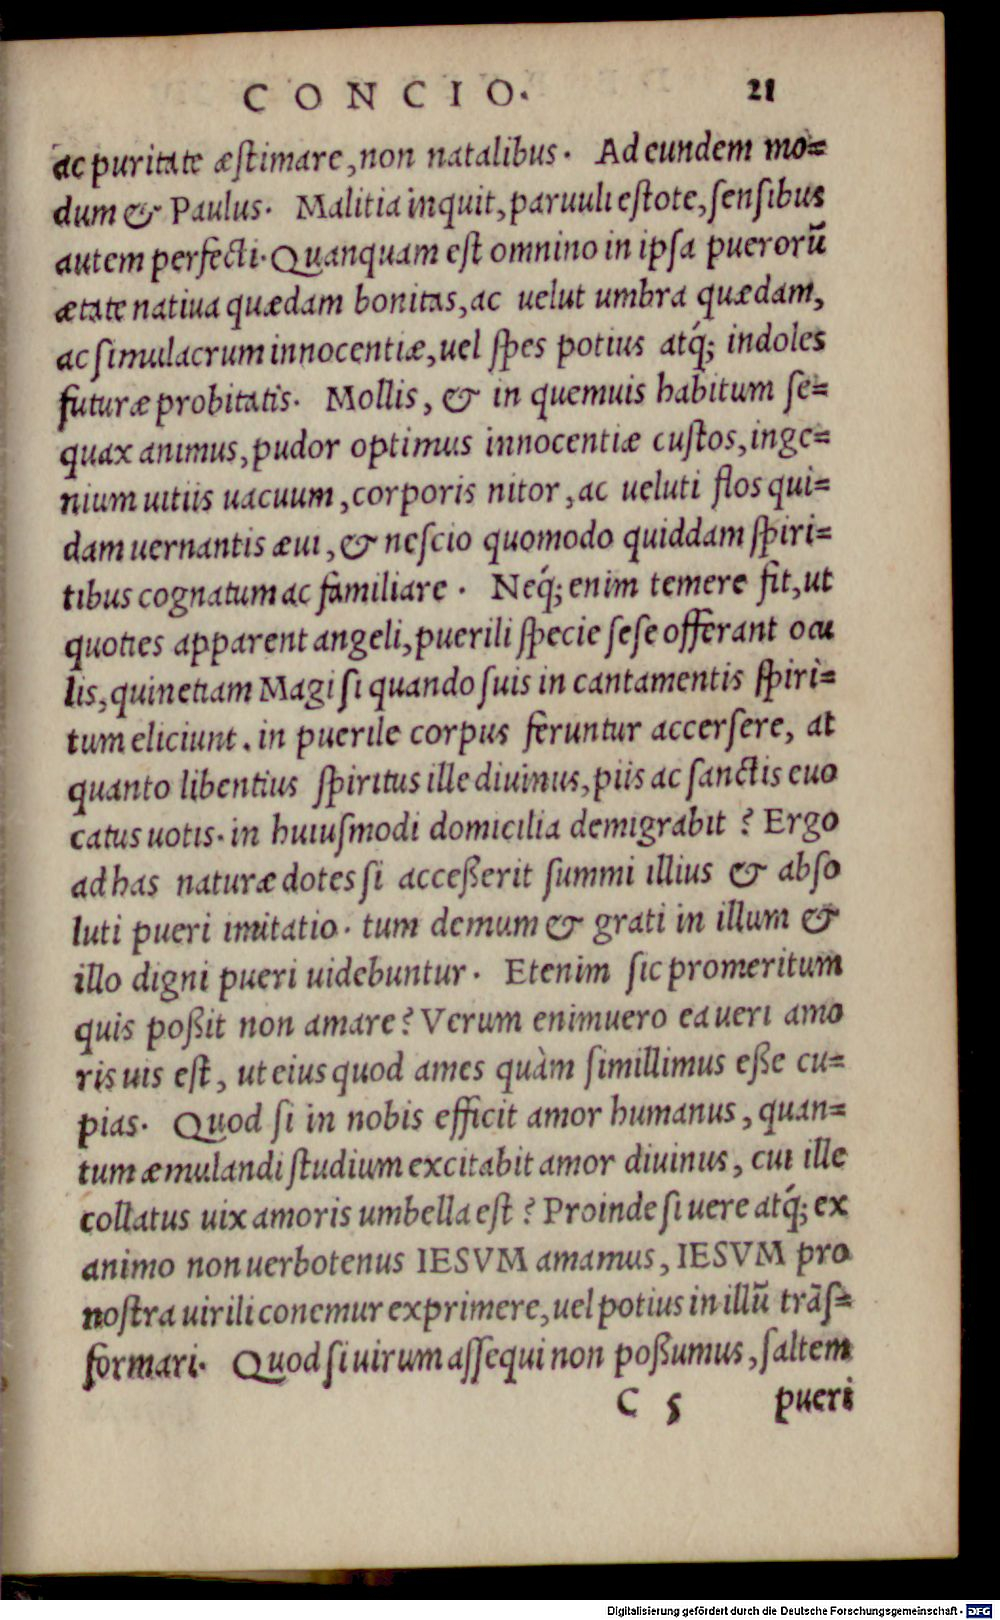 CONCIO. 21
ac puritate æstimare, non natalibus. Ad eundem mo=
dum & Paulus. Malitia inquit, paruuli estote, sensibus
autem perfecti. Quanquam est omnino in ipsa puerorũ
ætate natiua quædam bonitas, ac uelut umbra quædam,
ac simulacrum innocentiæ, uel spes potius atq́; indoles
futuræ probitatis. Mollis, & in quemuis habitum se=
quax animus, pudor optimus innocentiæ custos, inge=
nium uitiis uacuum, corporis nitor, ac ueluti flos qui=
dam uernantis æui, & nescio quomodo quiddam spiri=
tibus cognatum ac familiare. Neq́; enim temere fit, ut
quoties apparent angeli, puerili specie sese offerant ocu
lis, quinetiam Magi si quando suis in cantamentis spiri=
tum eliciunt. in puerile corpus feruntur accersere, at
quanto libentius spiritus ille diuinus, piis ac sanctis euo
catus uotis. in huiusmodi domicilia demigrabit? Ergo
ad has naturæ dotes si acceßerit summi illius & abso
luti pueri imitatio. tum demum & grati in illum &
illo digni pueri uidebuntur. Etenim sic promeritum
quis poßit non amare? Verum enimuero ea ueri amo
ris uis est, ut eius quod ames quàm simillimus eße cu=
pias. Quod si in nobis efficit amor humanus, quan=
tum æmulandi studium excitabit amor diuinus, cui ille
collatus uix amoris umbella est? Proinde si uere atq́; ex
animo non uerbotenus IESVM amamus, IESVM pro
nostra uirili conemur exprimere, uel potius in illũ trãs=
formari. Quod si uirum assequi non poßumus, saltem
C 5 pueri
Digitalisierung gefördert durch die Deutsche Forschungsgemeinschaft - DFG